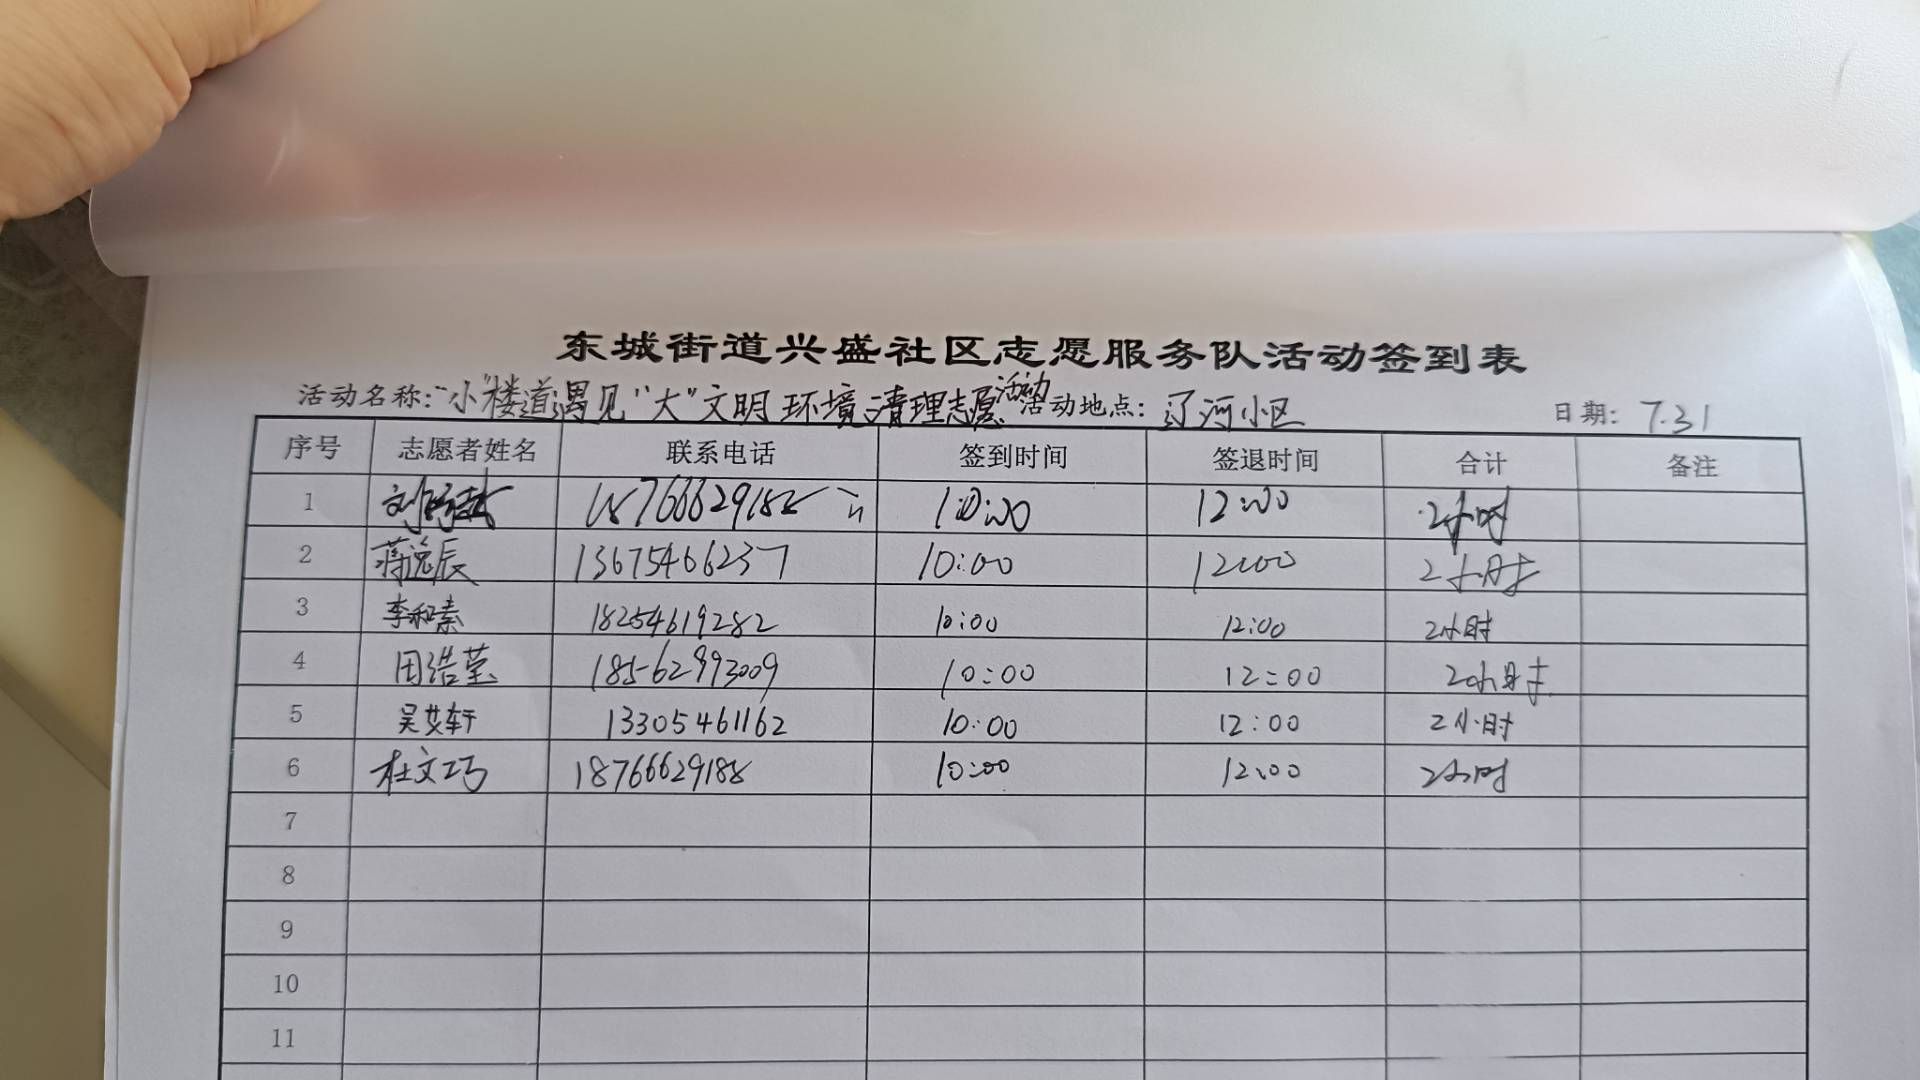 东城街道兴盛社区志愿服务队活动签到表
活动名称:"小"楼道遇见"大"文明环境清理志愿活动 活动地点: 辽河小区 日期: 7.31
序号 志愿者姓名 联系电话 签到时间 签退时间 合计 备注
1 10:00 12:00 2小时
2 蒋逸辰 13675466237 10:00 12:00 2小时
3 李和素 18254619282 10:00 12:00 2小时
4 田浩莹 18562993009 10:00 12:00 2小时
5 吴艾轩 13305461162 10:00 12:00 2小时
6 杜文巧 18766629188 10:00 12:00 2小时
7
8
9
10
11